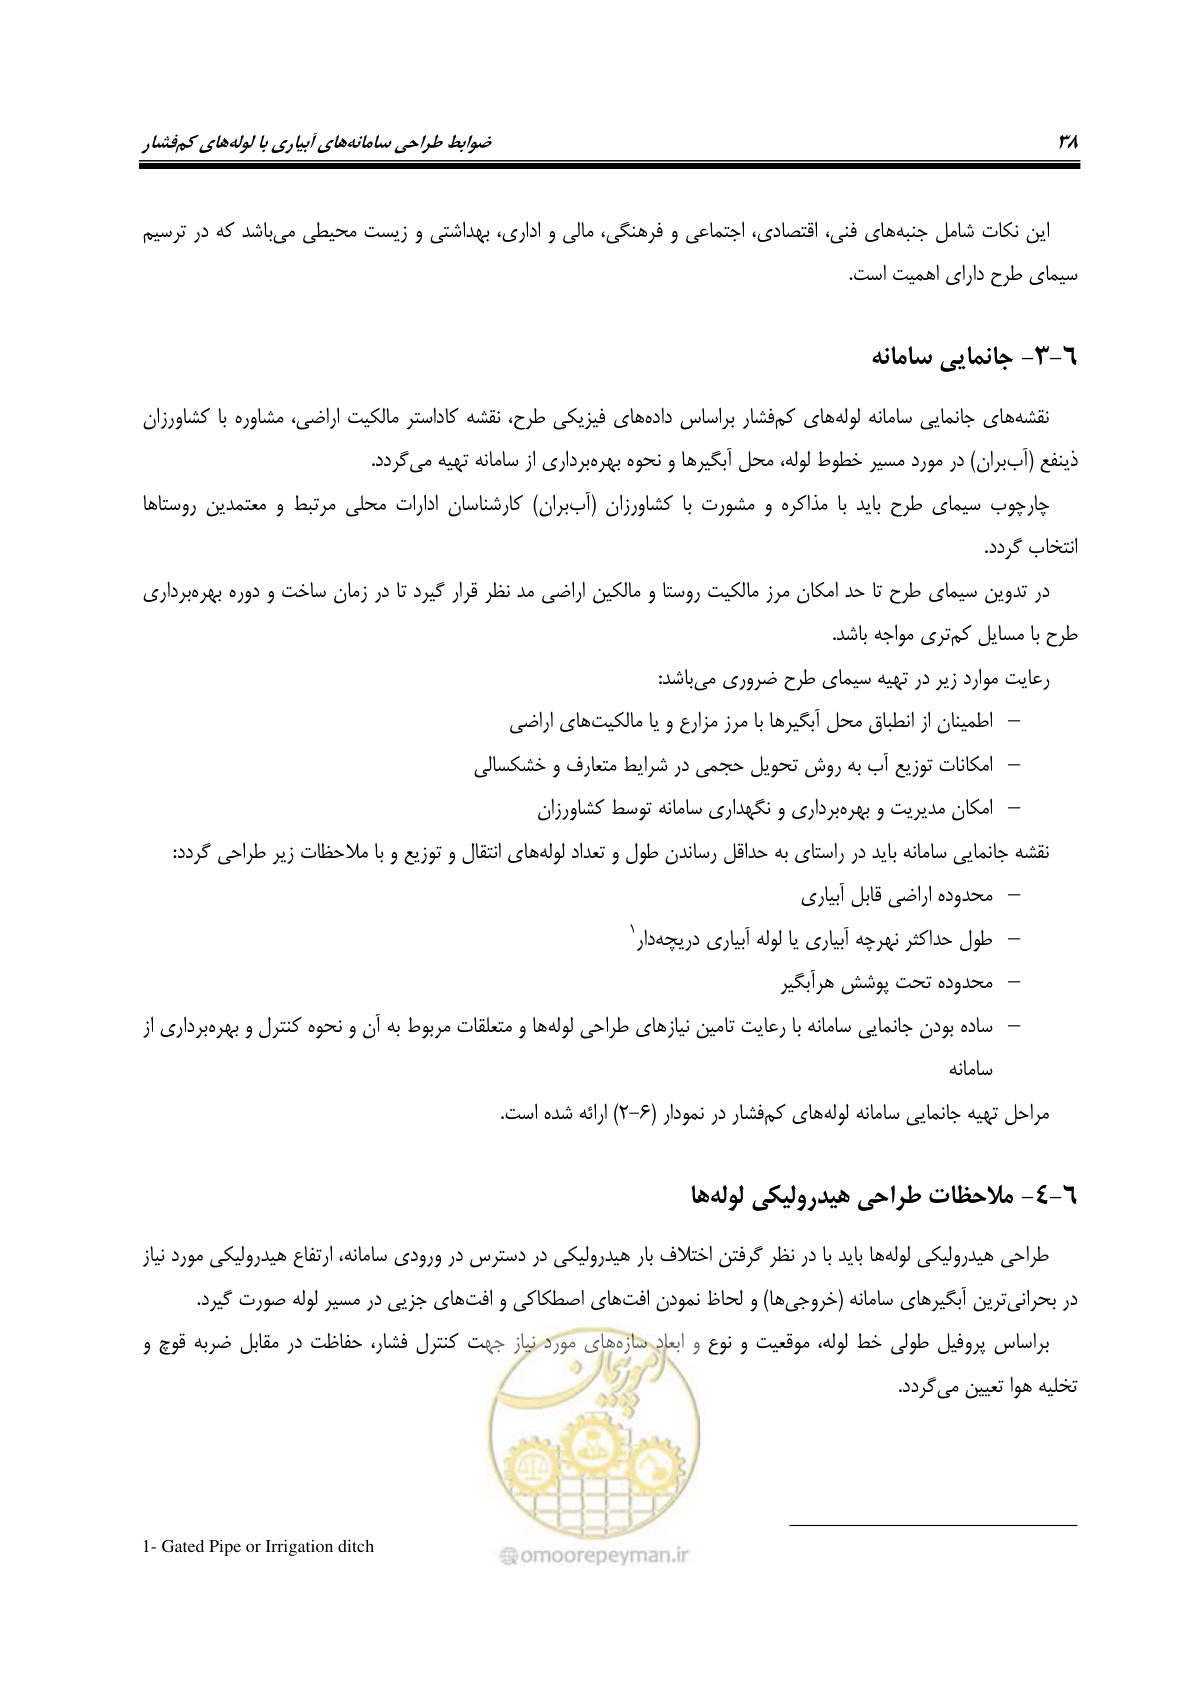 ۳۸ ضوابط طراحی سامانه‌های آبیاری با لوله‌های کم‌فشار
این نکات شامل جنبه‌های فنی، اقتصادی، اجتماعی و فرهنگی، مالی و اداری، بهداشتی و زیست محیطی می‌باشد که در ترسیم
سیمای طرح دارای اهمیت است.
۶-۳- جانمایی سامانه
نقشه‌های جانمایی سامانه لوله‌های کم‌فشار براساس داده‌های فیزیکی طرح، نقشه کاداستر مالکیت اراضی، مشاوره با کشاورزان
ذینفع (آب‌بران) در مورد مسیر خطوط لوله، محل آبگیرها و نحوه بهره‌برداری از سامانه تهیه می‌گردد.
چارچوب سیمای طرح باید با مذاکره و مشورت با کشاورزان (آب‌بران) کارشناسان ادارات محلی مرتبط و معتمدین روستاها
انتخاب گردد.
در تدوین سیمای طرح تا حد امکان مرز مالکیت روستا و مالکین اراضی مد نظر قرار گیرد تا در زمان ساخت و دوره بهره‌برداری
طرح با مسایل کم‌تری مواجه باشد.
رعایت موارد زیر در تهیه سیمای طرح ضروری می‌باشد:
– اطمینان از انطباق محل آبگیرها با مرز مزارع و یا مالکیت‌های اراضی
– امکانات توزیع آب به روش تحویل حجمی در شرایط متعارف و خشکسالی
– امکان مدیریت و بهره‌برداری و نگهداری سامانه توسط کشاورزان
نقشه جانمایی سامانه باید در راستای به حداقل رساندن طول و تعداد لوله‌های انتقال و توزیع و با ملاحظات زیر طراحی گردد:
– محدوده اراضی قابل آبیاری
– طول حداکثر نهرچه آبیاری یا لوله آبیاری دریچه‌دار۱
– محدوده تحت پوشش هرآبگیر
– ساده بودن جانمایی سامانه با رعایت تامین نیازهای طراحی لوله‌ها و متعلقات مربوط به آن و نحوه کنترل و بهره‌برداری از
سامانه
مراحل تهیه جانمایی سامانه لوله‌های کم‌فشار در نمودار (۶-۲) ارائه شده است.
۶-۴- ملاحظات طراحی هیدرولیکی لوله‌ها
طراحی هیدرولیکی لوله‌ها باید با در نظر گرفتن اختلاف بار هیدرولیکی در دسترس در ورودی سامانه، ارتفاع هیدرولیکی مورد نیاز
در بحرانی‌ترین آبگیرهای سامانه (خروجی‌ها) و لحاظ نمودن افت‌های اصطکاکی و افت‌های جزیی در مسیر لوله صورت گیرد.
براساس پروفیل طولی خط لوله، موقعیت و نوع و ابعاد سازه‌های مورد نیاز جهت کنترل فشار، حفاظت در مقابل ضربه قوچ و
تخلیه هوا تعیین می‌گردد.
امور پیمان
1- Gated Pipe or Irrigation ditch
omoorepeyman.ir